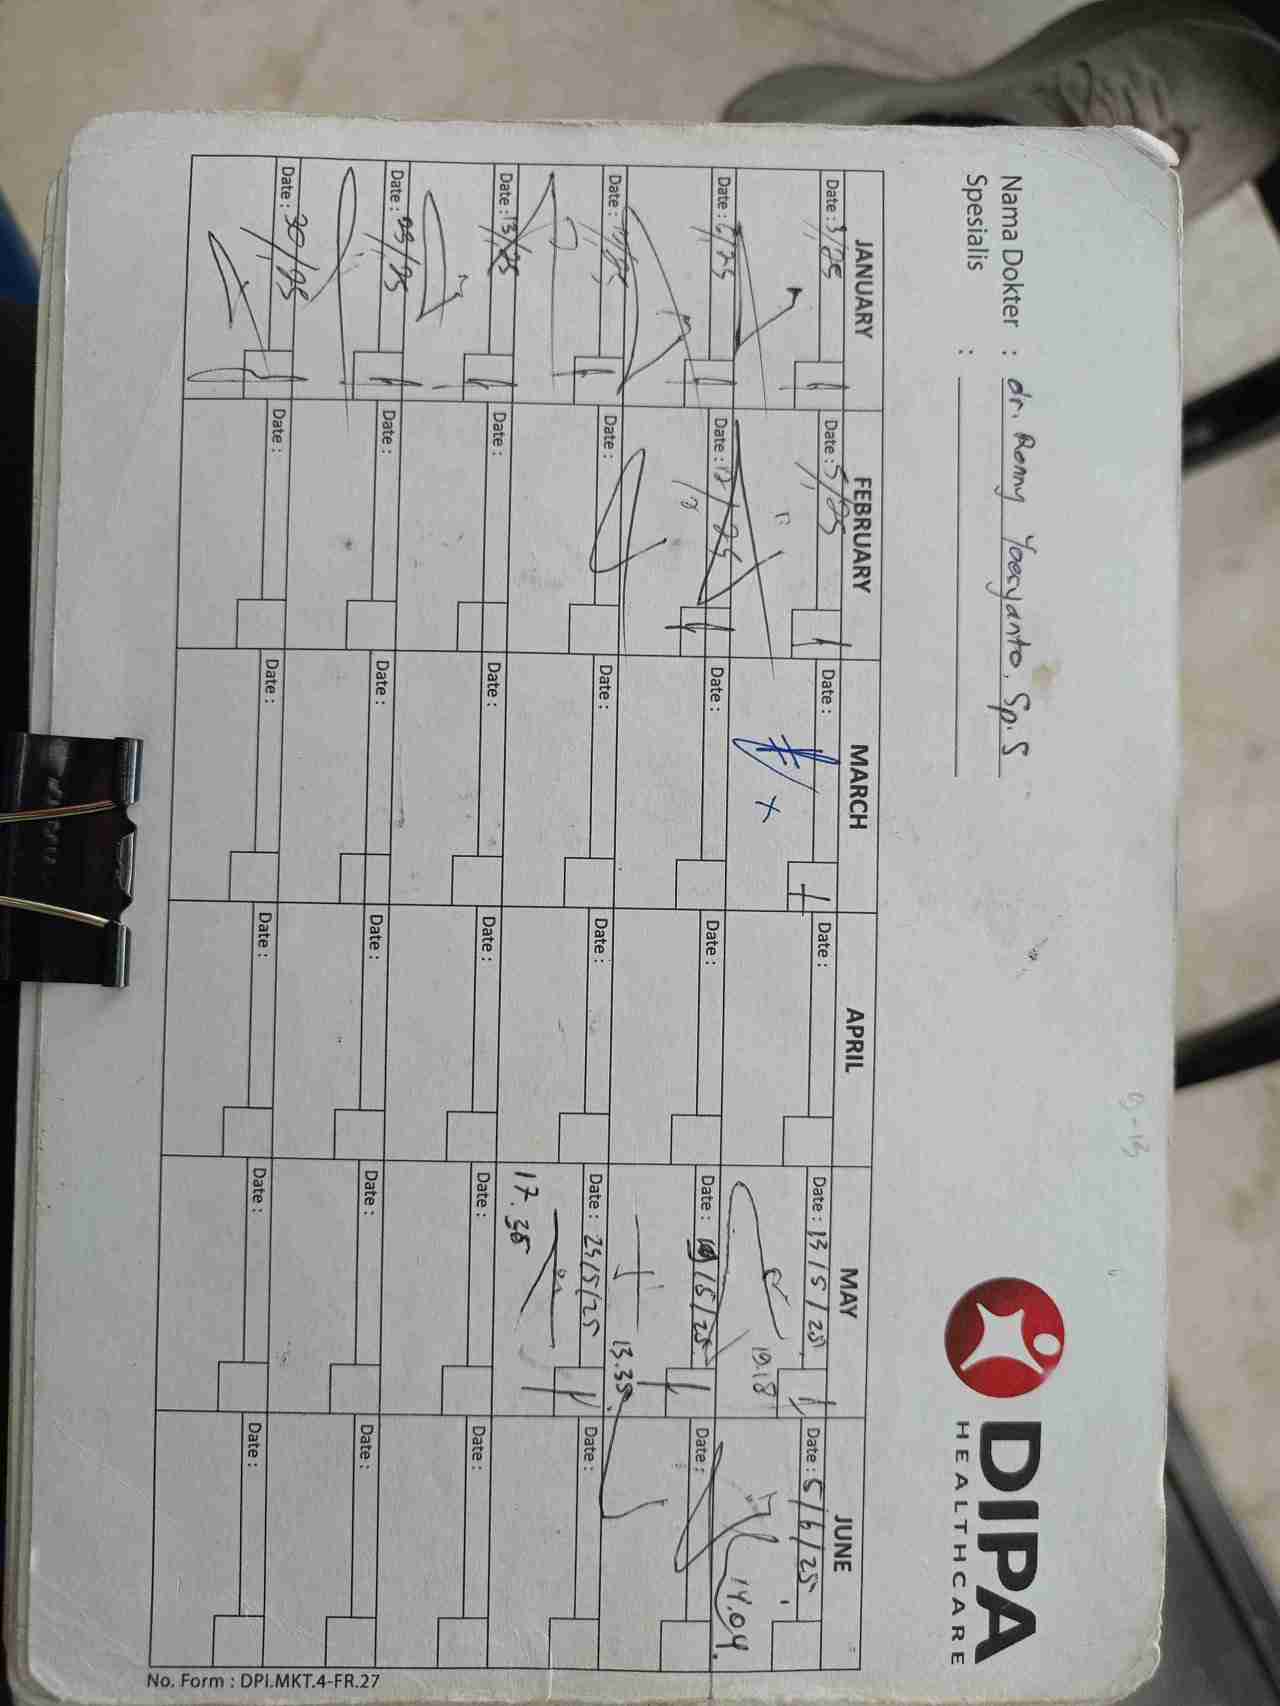 DIPA
HEALTHCARE
Nama Dokter : dr. Ronny Yoesyanto, Sp.S
Spesialis :
9-13
JANUARY FEBRUARY MARCH APRIL MAY JUNE
Date : 3/25 Date : 5/25 Date : Date : Date : 13/5/25 Date : 5/6/25
19.18 14.04.
Date : 6/25 Date : 12/25 Date : Date : Date : /5/25 Date :
13.35.
Date : Date : Date : Date : Date : 23/5/25 Date :
17.35
Date : 13/25 Date : Date : Date : Date : Date :
Date : 23/25 Date : Date : Date : Date : Date :
Date : 30/25 Date : Date : Date : Date : Date :
No. Form : DPI.MKT.4-FR.27